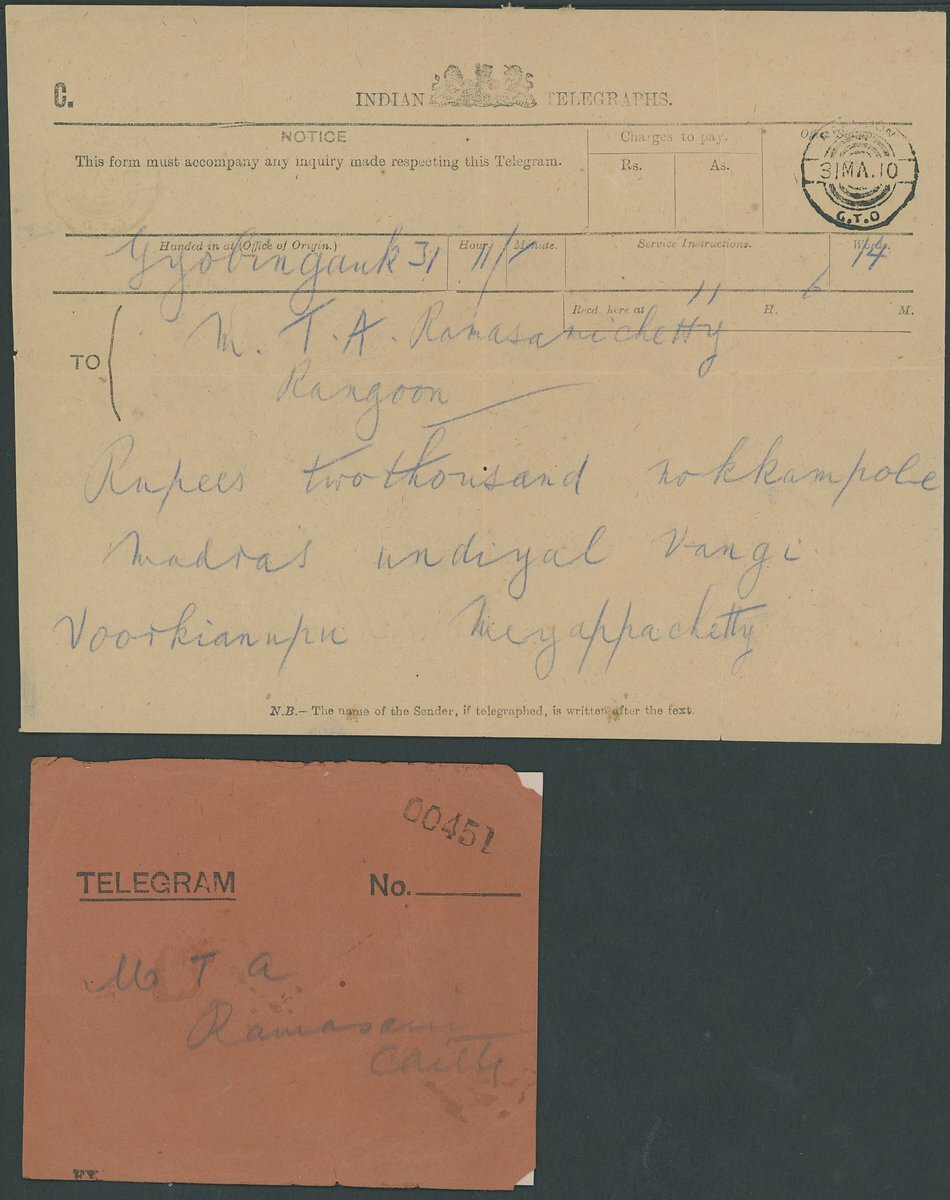 C.
INDIAN TELEGRAPHS.
NOTICE
This form must accompany any inquiry made respecting this Telegram.
Charges to pay.
Rs. As.
31 MA. 10
G.T.O
Handed in at (Office of Origin.)
Hour. Minute.
Service Instructions.
Words.
Gyobingauk 31 11/ 14
Recd. here at H. M.
11 6
TO
M. T. A. Ramasamichetty
Rangoon
Rupees twothousand nokkampole
Madras undiyal Vangi
Voorkianupu Meyappachetty
N.B.— The name of the Sender, if telegraphed, is written after the text.
00451
TELEGRAM No.
M T A
Ramasami
Chitty